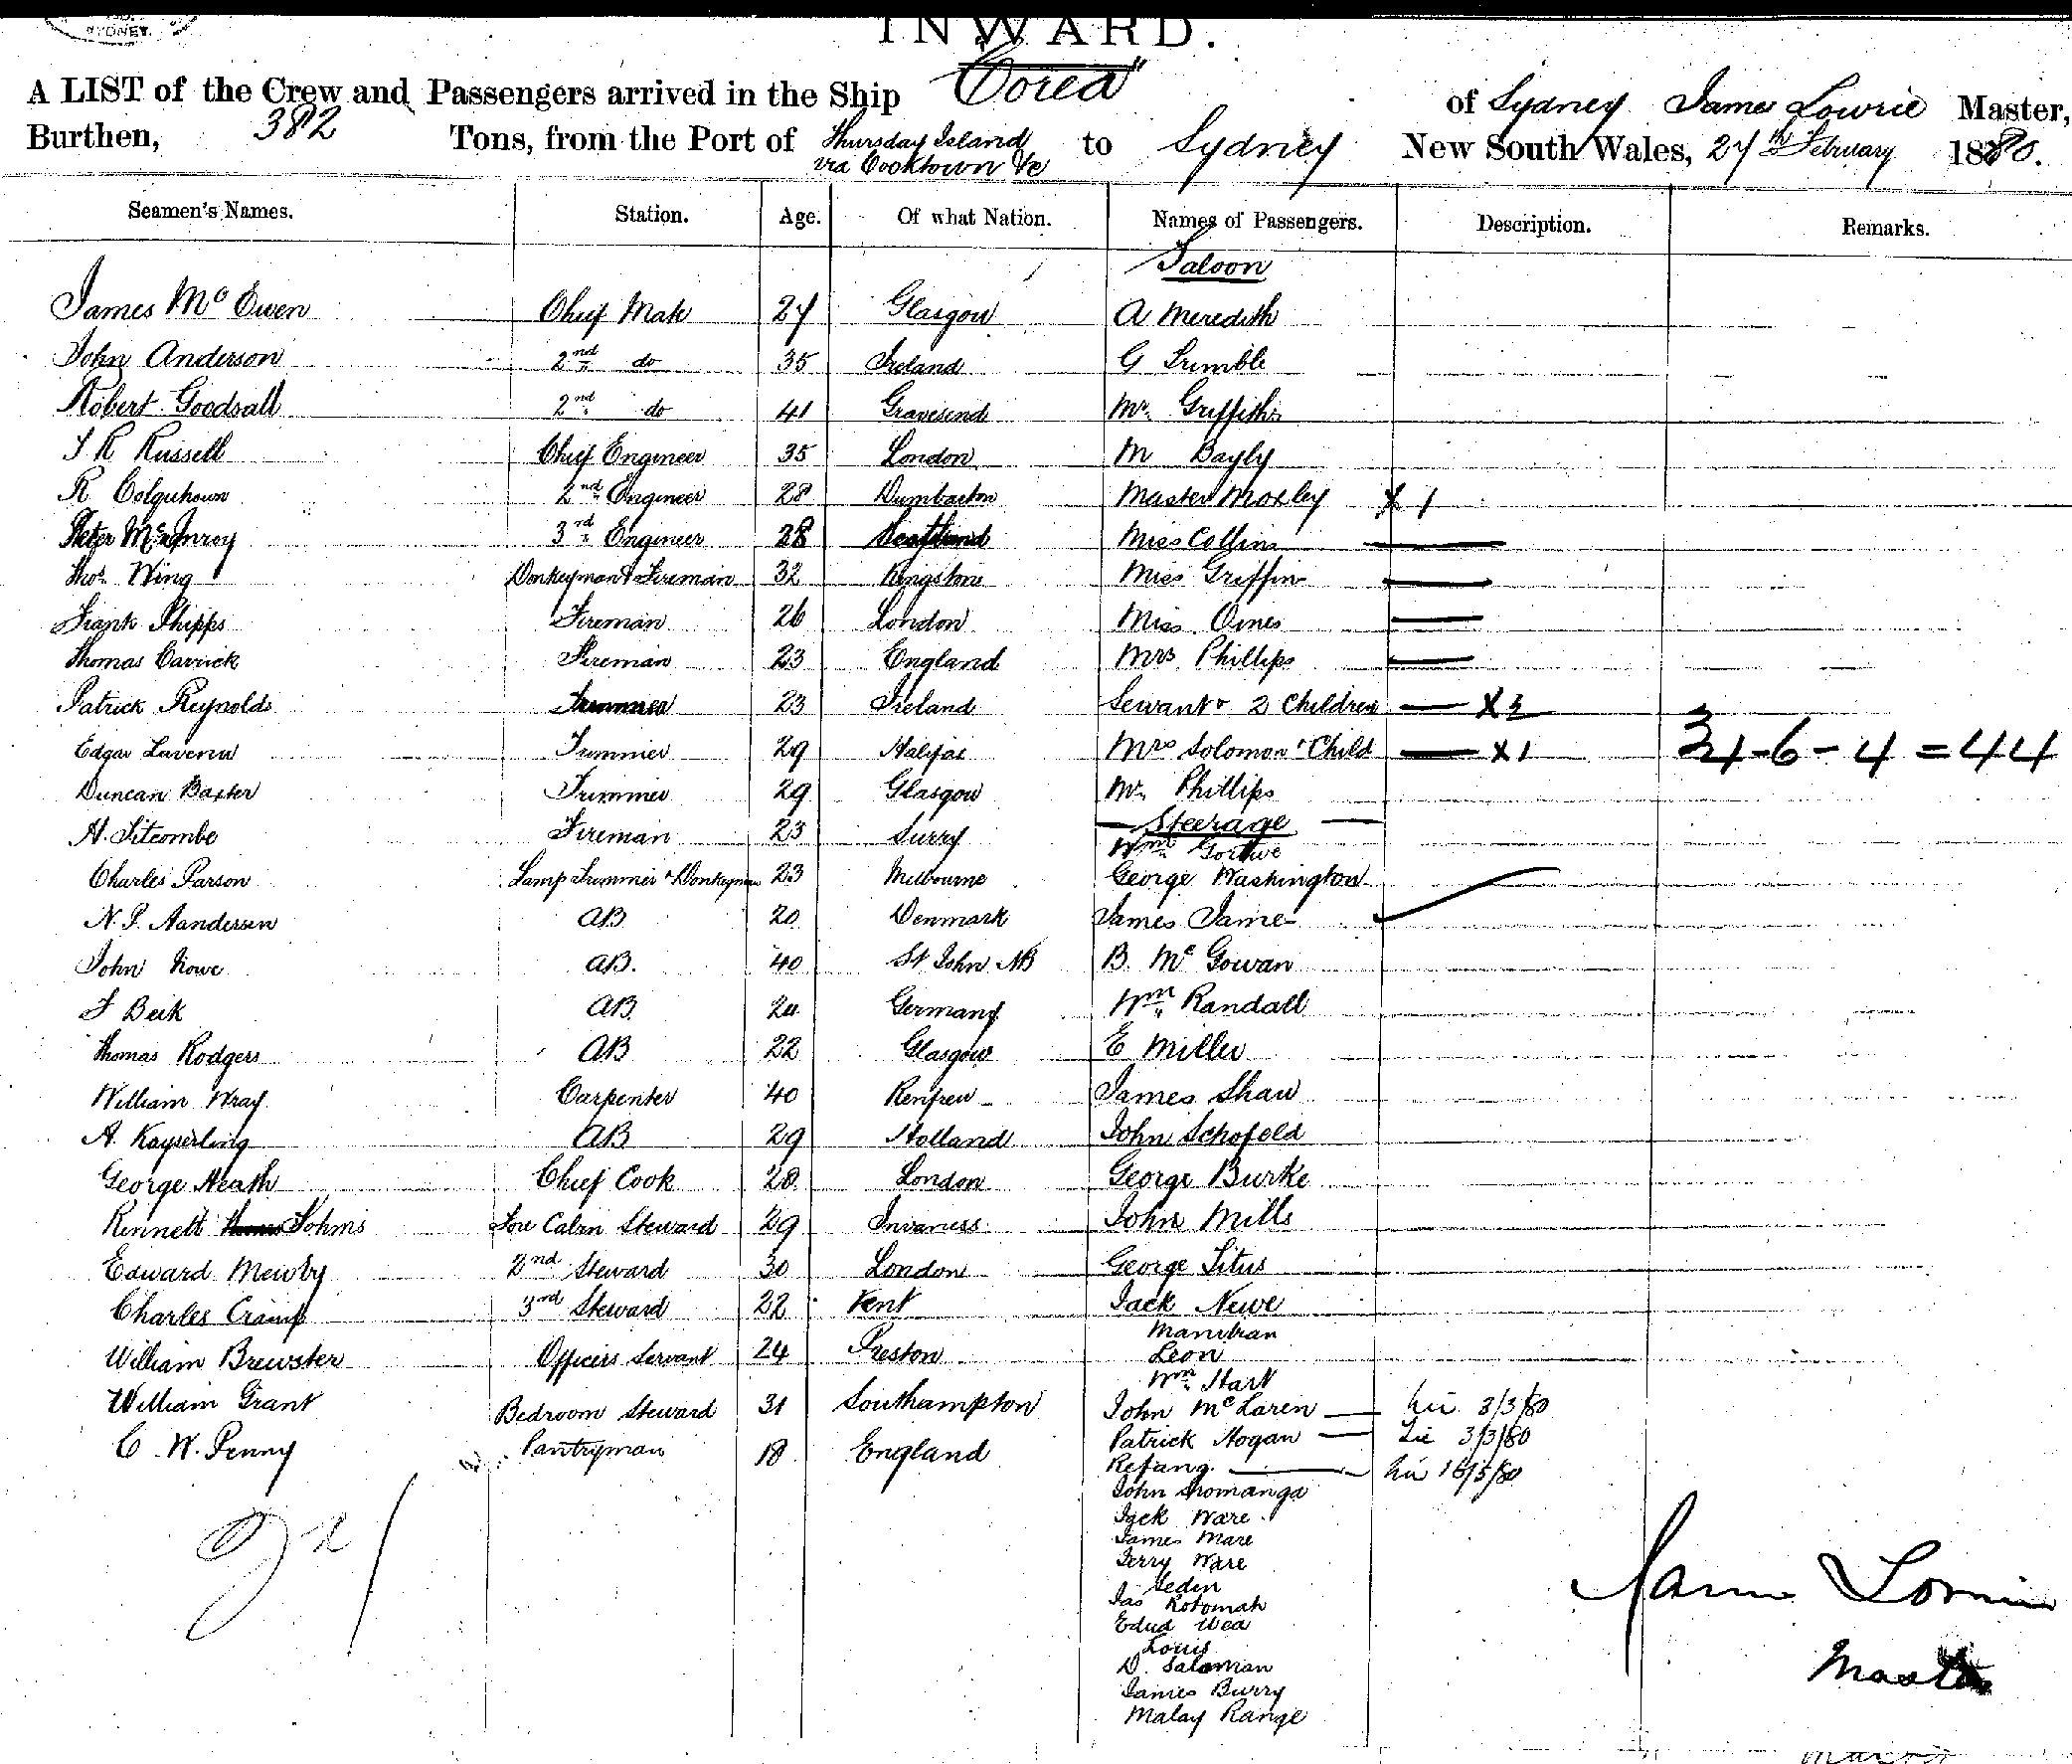 SYDNEY.
INWARD.
A LIST of the Crew and Passengers arrived in the Ship "Corea" of Sydney James Lowrie Master,
Burthen, 382 Tons, from the Port of Thursday Island via Cooktown &c to Sydney New South Wales, 27th February 1880.
Seamen's Names. Station. Age. Of what Nation. Names of Passengers. Description. Remarks.
Saloon
James Mc Ewen Chief Mate 27 Glasgow A Meredith
John Anderson 2nd do 35 Ireland G Trumble
Robert Goodsall 2nd do 41 Gravesend Mr Griffiths
J R Russell Chief Engineer 35 London M Bayly
R Colquhoun 2nd Engineer 28 Dumbarton Master Moxley X 1
Peter McInroy 3rd Engineer 28 Scotland Miss Collins
Thos Wing Donkeyman & Fireman 32 Kingstone Miss Griffin
Frank Phipps Fireman 26 London Miss Oines
Thomas Carrick Fireman 23 England Mrs Phillips
Patrick Reynolds Trimmer 23 Ireland Servant & 2 Children — X 3
Edgar Trimmer 29 Halifax Mrs Solomon & Child — X 1 34-6-4=44
Duncan Baxter Trimmer 29 Glasgow Mr Phillips
Steerage
H. Titcombe Fireman 23 Surry Wm
Charles Parson Lamp Trimmer & Donkeyman 23 Melbourne George Washington
N. P. Nandersen AB 20 Denmark James Jame
John Rowe AB. 40 St John NB B. Mc Gowan
F Beik AB 24 Germany Wm Randall
Thomas Rodgers AB 22 Glasgow E Miller
William Wray Carpenter 40 Renfrew James Shaw
A. Kayserling AB 29 Holland John Schofeld
George Heath Chief Cook 28 London George Burke
Kennett Johms Fore Cabin Steward 29 Invaness John Mills
Edward Mewby 2nd Steward 30 London George Titus
Charles Cramp 3rd Steward 22 Kent Jack Newe
Manitran
William Brewster Officers Servant 24 Preston Leon
Wm Hart
William Grant Bedroom Steward 31 Southampton John McLaren — 3/3/80
Patrick Hogan — 3/3/80
C. W. Penny Pantryman 18 England Refang —
John Thomanga
Jack Ware
James Mare
Jerry Ware
Sedin
Jas Rotomah
Edwd Wea
Louis
D. Salaman
James Burry
Malay Range
James Lowrie
Master